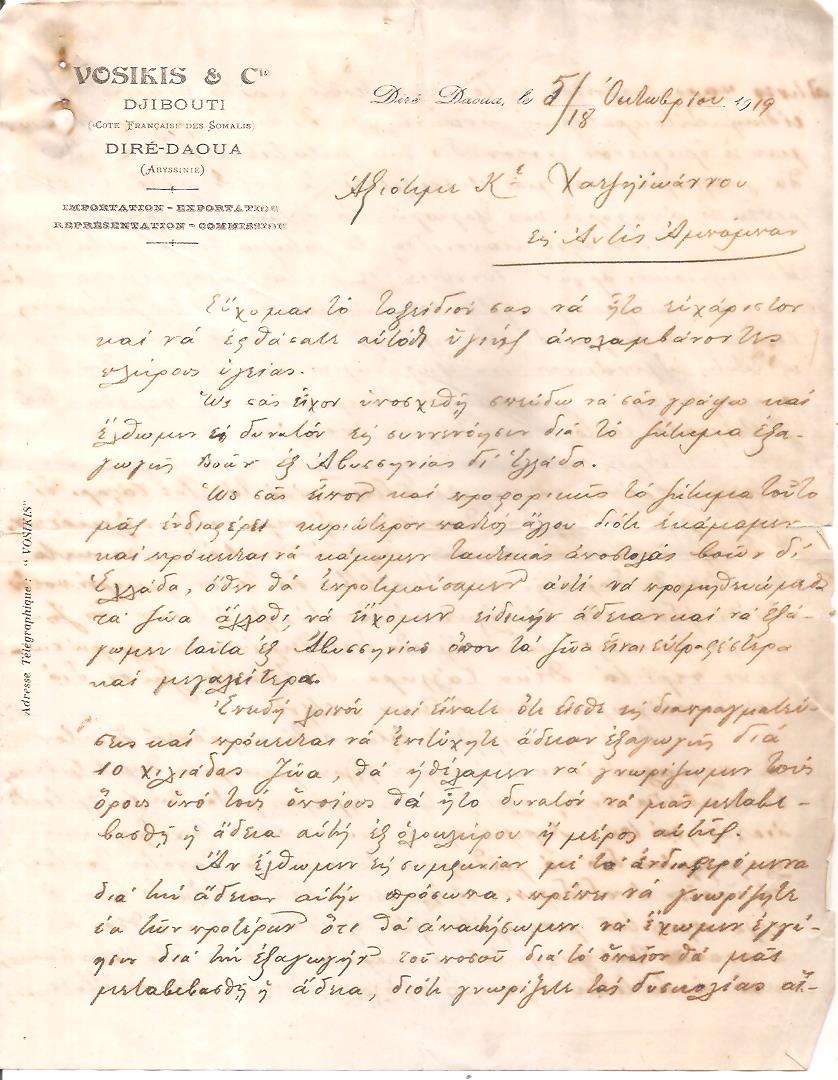 VOSIKIS & Cie
DJIBOUTI
(COTE FRANÇAISE DES SOMALIS)
DIRÉ-DAOUA
(ABYSSINIE)
IMPORTATION - EXPORTATION
REPRÉSENTATION - COMMISSION
Adresse Télégraphique : " VOSIKIS"
Diré Daoua, le 5/18 Ὀκτωβρίου 1919
Ἀξιότιμε Κε Χατζηϊωάννου
εἰς Ἀντὶς Ἀμπάμπαν
Εὔχομαι τὸ ταξείδιόν σας νὰ ἦτο εὐχάριστον
καὶ νὰ ἐφθάσατε αὐτόθι ὑγιεῖς ἀπολαμβάνοντες
πλήρους ὑγείας.
Ὡς σᾶς εἶχον ὑποσχεθῆ σπεύδω νὰ σᾶς γράψω καὶ
ἔλθωμεν εἰ δυνατόν εἰς συννενόησιν διὰ τὸ ζήτημα ἐξα-
γωγῆς βοῶν ἐξ Ἀβυσσηνίας δι' Ἑλλάδα.
Ὡς σᾶς εἶπον καὶ προφορικῶς τὸ ζήτημα τοῦτο
μᾶς ἐνδιαφέρει κυριώτερον παντὸς ἄλλου διότι ἐκάμαμεν
καὶ πρόκειται νὰ κάμωμεν τακτικὰς ἀποστολὰς βοῶν δι'
Ἑλλάδα, ὅθεν θὰ ἐπροτιμούσαμεν ἀντὶ νὰ προμηθευώμεθα
τὰ ζῶα ἄλλοθι, νὰ εἴχομεν εἰδικὴν ἄδειαν καὶ νὰ ἐξά-
γωμεν ταῦτα ἐξ Ἀβυσσηνίας ὅπου τὰ ζῶα εἶναι εὐτραφέστερα
καὶ μεγαλείτερα.
Ἐπειδὴ λοιπόν μοὶ εἴπατε ὅτι εἶσθε εἰς διαπραγματεύ-
σεις καὶ πρόκειται νὰ ἐπιτύχητε ἄδειαν ἐξαγωγῆς διὰ
10 χιλιάδας ζῶα, θὰ ἠθέλαμεν νὰ γνωρίζωμεν τοὺς
ὅρους ὑπὸ τοὺς ὁποίους θὰ ἦτο δυνατόν νὰ μᾶς μεταβι-
βασθῆ ἡ ἄδεια αὐτὴ ἐξ ὁλοκλήρου ἢ μέρος αὐτῆς.
Ἂν ἔλθωμεν εἰς συμφωνίαν μὲ τὰ ἐνδιαφερόμενα
διὰ τὴν ἄδειαν αὐτὴν πρόσωπα, πρέπει νὰ γνωρίζητε
ἐκ τῶν προτέρων ὅτι θὰ ἀπαιτήσωμεν νὰ ἔχωμεν ἐγγύ-
ησιν διὰ τὴν ἐξαγωγὴν τοῦ ποσοῦ διὰ τὸ ὁποῖον θὰ μᾶς
μεταβιβασθῆ ἡ ἄδεια, διότι γνωρίζετε τὰς δυσκολίας αἵ-